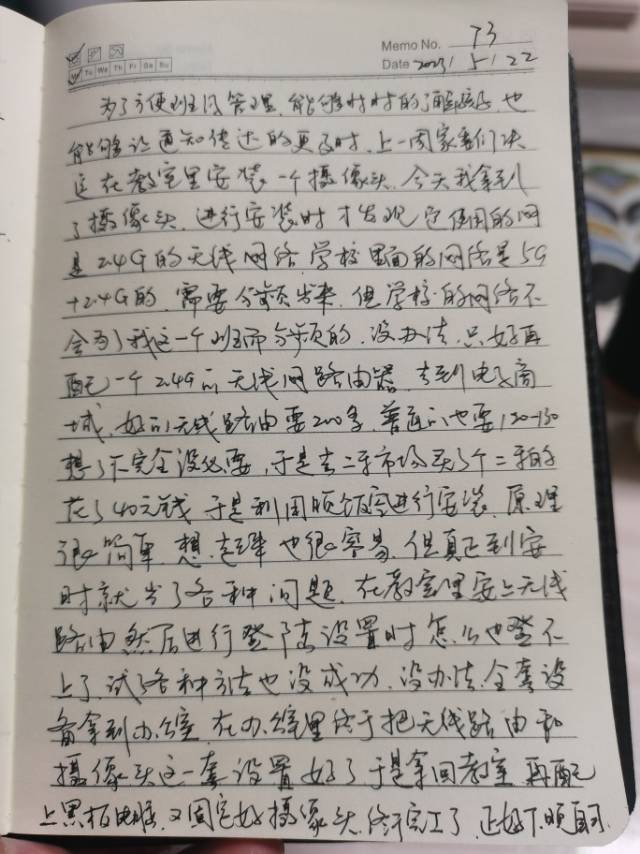 Memo No. 73
Mo Tu We Th Fr Sa Su
Date 2023 / 5 / 22
为了方便班级管理,能够时时的了解班级,也
能够让通知传达的更及时,上一周家委们决
定在教室里安装一个摄像头,今天我拿到
了摄像头,进行安装时才发现它使用的网
是2.4G的无线网络,学校里面的网络是5G
+2.4G的,需要分频出来,但学校的网络不
会为了我这一个班而分频的,没办法,只好再
配一个2.4G的无线网路由器,去到电子商
城,好的无线路由要200多,普通的也要120-130
想了下完全没必要,于是去二手市场买了个二手的
花了40元钱,于是利用晚饭空进行安装,原理
很简单,想起来也很容易,但真正到安
时就出了各种问题,在教室里安上无线
路由然后进行登陆设置时怎么也登不
上了,试了各种方法也没成功,没办法,全套设
备拿到办公室,在办公室里终于把无线路由和
摄像头这一套设置好了于是拿回教室,再配
上黑板电脑,又固定好摄像头,终于完工了,正好下晚自习.